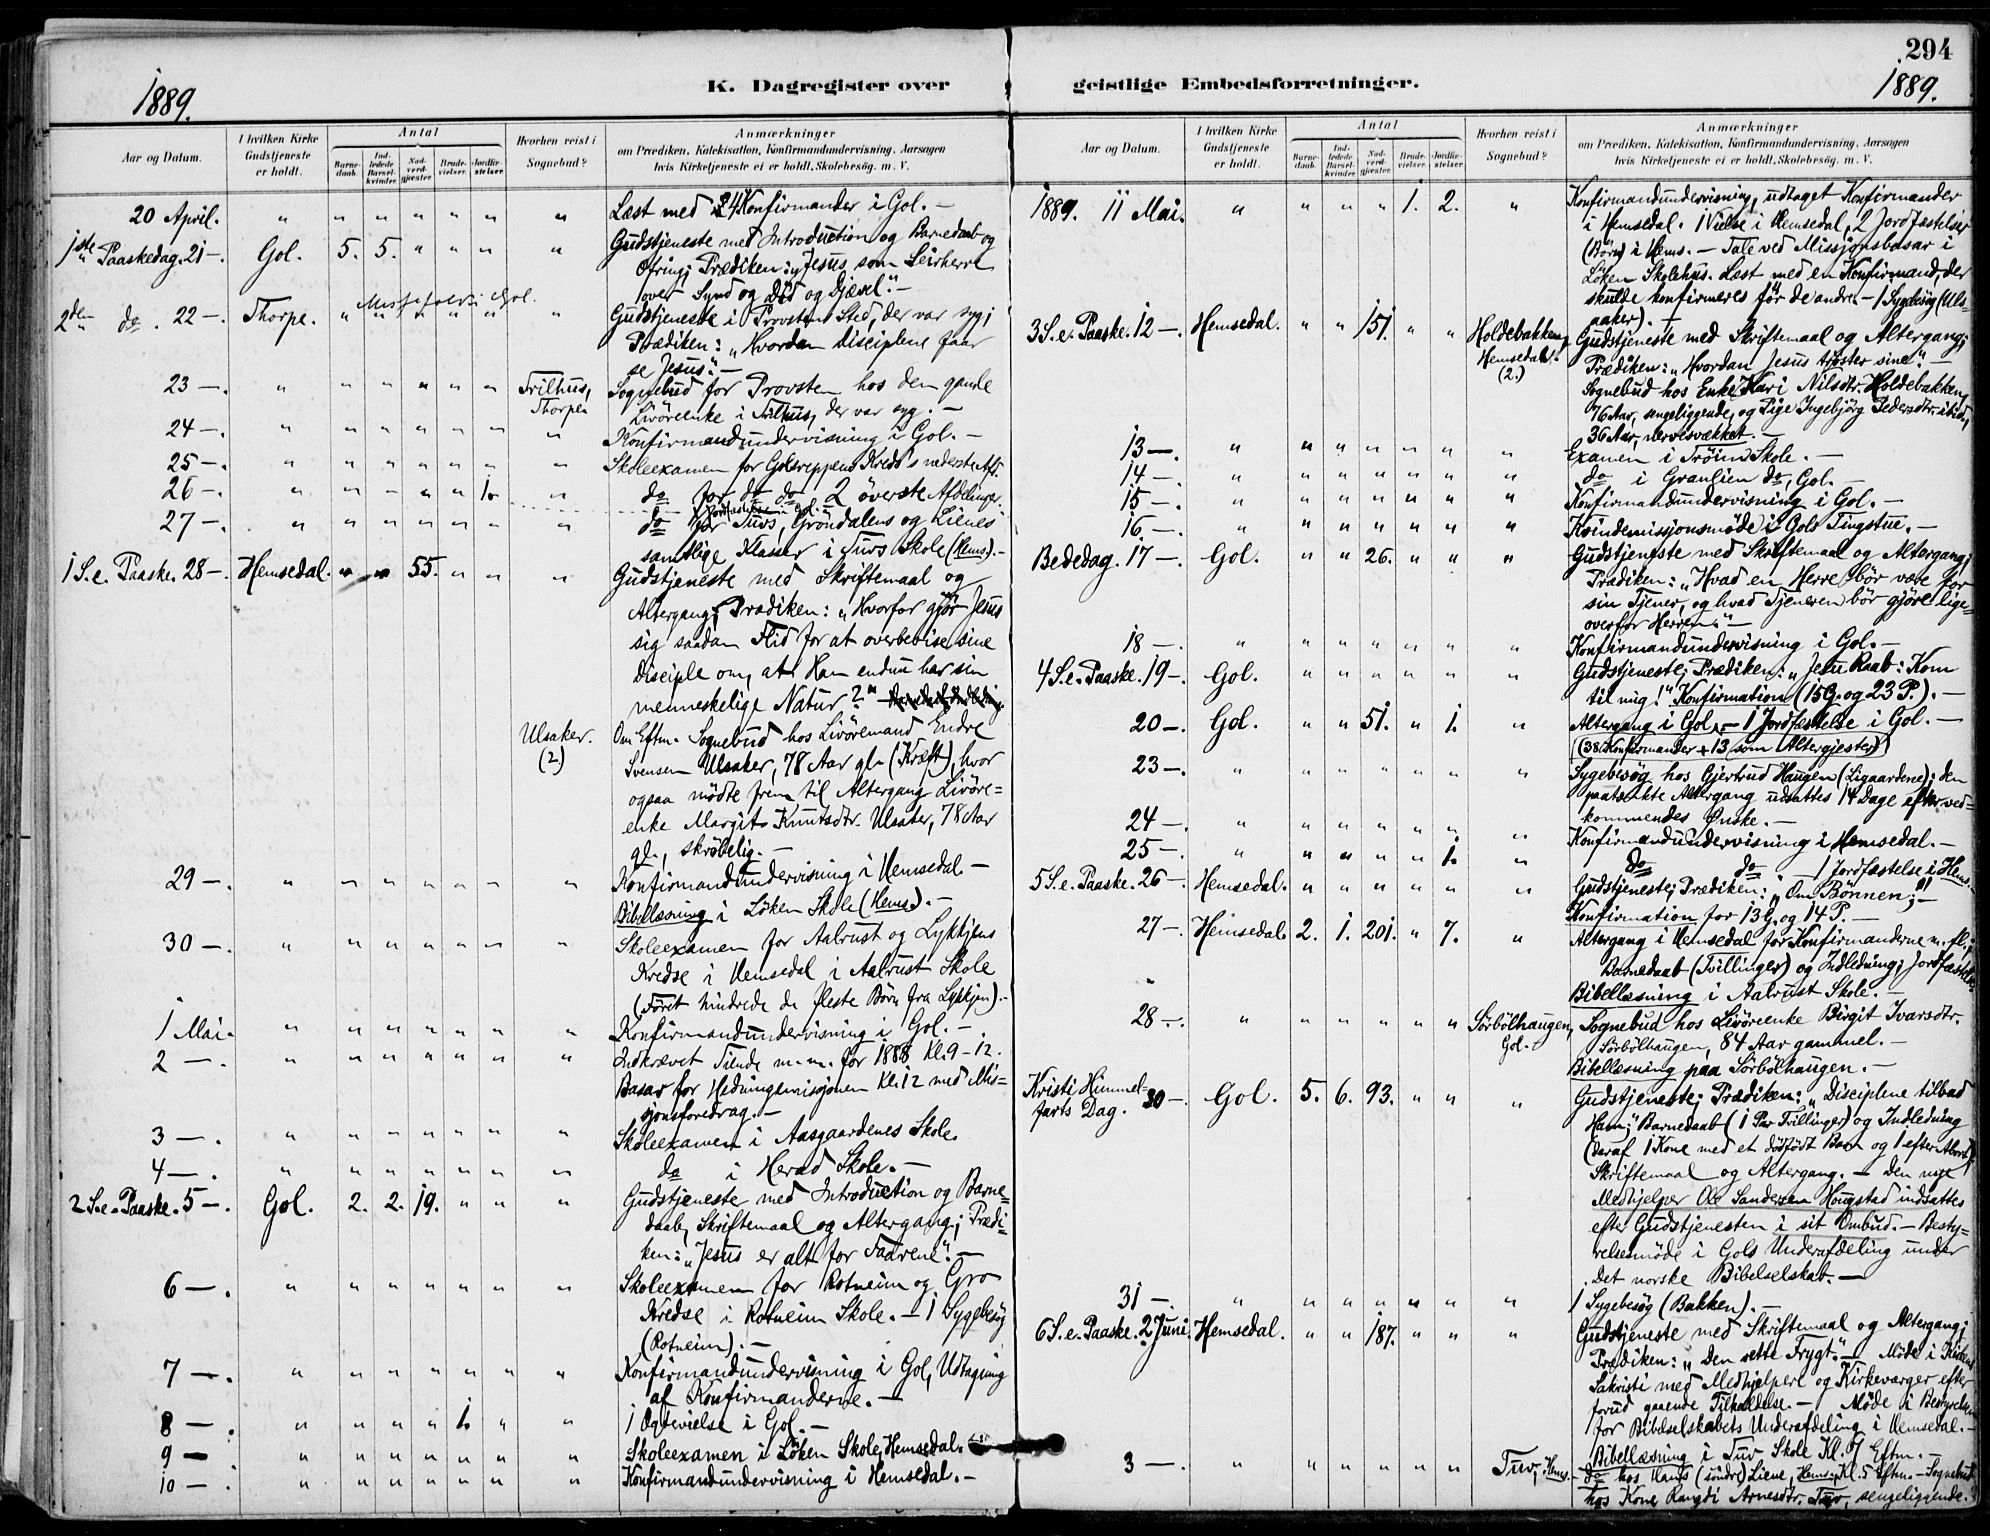 294
1889.
K. Dagregister over geistlige Embedsforretninger.
1889.
Aar og Datum.
I hvilken Kirke Gudstjeneste er holdt.
Antal
Barnedaab.
Indledede Barselkvinder.
Nadverdgjæster.
Brudevielser.
Jordfæstelser.
Hvorhen reist i Sognebud?
Anmærkninger
om Prædiken, Katekisation, Konfirmandundervisning, Aarsagen
hvis Kirketjeneste ei er holdt, Skolebesøg. m. V.
20 April. " " " " " " " Læst med 24 Konfirmander i Gol. —
1ste Paaskedag. 21 —. Gol. 5. 5. " " " " Gudstjeneste med Introduction og Barnedaab og
Ofring; Prædiken: "Jesus som Seirherre
over Synd og Död og Djævel." —
2den do. 22 —. Thorpe. " " " " " " Gudstjeneste i Provstens Sted, der var syg;
Messefald i Gol.
Prædiken: "Hvordan disciplene faar
se Jesus." —
23 —. " " " " " " Trilhus, Thorpe. Sognebud for Provsten hos den gamle
Livöreenke i Trilhus, der var syg. —
24 —. " " " " " " " Konfirmandundervisning i Gol. —
25 —. " " " " " " " Skoleexamen for Golsreppens Kreds's nederste Afd.
26 —. " " " " " 1. " do for do do 2 överste Afdelinger.
1 Jordfæstelse i Gol. —
27 —. " " " " " " " do for Tuvs, Gröndalens og Lienes
samtlige Klasser i Tuvs Skole (Hems). —
1 S. e. Paaske. 28 —. Hemsedal. " " 55. " " " Gudstjeneste med Skriftemaal og
Altergang; Prædiken: "Hvorfor gjör Jesus
sig saadan Flid for at overbevise sine
Disciple om, at Han endnu har sin
menneskelige Natur?" —
Ulsaker. (2) Om Eftm. Sognebud hos Livöremand Endre
Svensen Ulsaker, 78 Aar gl. (Kræft), hvor
ogsaa mödte frem til Altergang Livöre=
enke Margit Knutsdtr. Ulsaker, 78 Aar
gl., skröbelig. —
29 —. " " " " " " " Konfirmandundervisning i Hemsedal. —
Bibellæsning i Löken Skole (Hems). —
30 —. " " " " " " " Skoleexamen for Aalrust og Lykkjens
Kredse i Hemsedal i Aalrust Skole
(Föret hindrede de fleste Börn fra Lykkjen). —
1 Mai. " " " " " " " Konfirmandundervisning i Gol. —
2 —. " " " " " " " Indkrævet Tiende m. m. for 1888 Kl. 9–12.
Basar for Hedningemissjonen Kl. 12 med Mis=
sjonsforedrag. —
3 —. " " " " " " " Skoleexamen i Aasgaardenes Skole.
4 —. " " " " " " " do i Herad Skole. —
2 S. e. Paaske. 5 —. Gol. 2. 2. 19. " " " Gudstjeneste med Introduction og Barne=
daab, Skriftemaal og Altergang; Prædi=
ken: "Jesus er alt for Faarene." —
6 —. " " " " " " " Skoleexamen for Rotneim og Gro
Kredse i Rotneim Skole. — 1 Sygebesög
(Rotneim). —
7 —. " " " " " " " Konfirmandundervisning i Gol, Udtagning
af Konfirmanderne. —
8 —. " " " " 1. " " 1 Ægtevielse i Gol. —
9 —. " " " " " " " Skoleexamen i Löken Skole, Hemsedal.
10 —. " " " " " " " Konfirmandundervisning i Hemsedal. —
Aar og Datum.
I hvilken Kirke Gudstjeneste er holdt.
Antal
Barnedaab.
Indledede Barselkvinder.
Nadverdgjæster.
Brudevielser.
Jordfæstelser.
Hvorhen reist i Sognebud?
Anmærkninger
om Prædiken, Katekisation, Konfirmandundervisning, Aarsagen
hvis Kirketjeneste ei er holdt, Skolebesøg. m. V.
1889. 11 Mai. " " " " 1. 2. " Konfirmandundervisning, udtaget Konfirmander
i Hemsedal. 1 Vielse i Hemsedal, 2 Jordfæstelser
(Börn) i Hems. — Tale ved Missjonsbasar i
Löken Skolehus. Læst med en Konfirmand, der
skulde konfirmeres för de andre. — 1 Sygebesög (Uls=
aaker). —
3 S. e. Paaske. 12 —. Hemsedal. " " 151. " " Holdebakken, Hemsedal. (2.) Gudstjeneste med Skriftemaal og Altergang;
Prædiken: "Hvordan Jesus tröster sine." —
Sognebud hos Enke Kari Nilsdtr. Holdebakken,
76 Aar, sengeliggende, og Pige Ingebjörg Pedersdtr. ibid,
36 Aar, nervesvækket. —
13 —. " " " " " " " Examen i Tröim Skole. —
14 —. " " " " " " " do i Granlien do, Gol. —
15 —. " " " " " " " Konfirmandundervisning i Gol. —
16 —. " " " " " " " Kvindemissjonsmöde i Gols Tingstue. —
Bededag. 17 —. Gol. " " 26. " " " Gudstjeneste med Skriftemaal og Altergang;
Prædiken: "Hvad en Herre bör være for
sin Tjener, og hvad Tjeneren bör gjöre lige=
overfor Herren." —
18 —. " " " " " " " Konfirmandundervisning i Gol. —
4 S. e. Paaske. 19 —. Gol. " " " " " " Gudstjeneste; Prædiken: "Jesu Raab: Kom
til mig!" Konfirmation (15 G. og 23 P.). —
20 —. Gol. " " 51. " 1. " Altergang i Gol. — 1 Jordfæstelse i Gol. —
(38 Konfirmander + 13 som Altergjester)
23 —. " " " " " " " Sygebesög hos Gjertrud Haugen (Ligaardene); den
paatænkte Altergang udsattes 14 Dage efter ved=
kommendes Önske. —
24 —. " " " " " " " Konfirmandundervisning i Hemsedal. —
25 —. " " " " " 1. " do do — 1 Jordfæstelse i Hems.
5 S. e. Paaske. 26 —. Hemsedal. " " " " " " Gudstjeneste; Prædiken: "Om Bönnen;" —
Konfirmation for 13 G. og 14 P. —
27 —. Hemsedal. 2. 1. 201. " 7. " Altergang i Hemsedal for Konfirmanderne m. fl.;
Barnedaab (Tvillinger) og Indledning; Jordfæstelse.
Bibellæsning i Aalrust Skole. —
28 —. " " " " " " Sörbölhaugen, Gol. Sognebud hos Livöreenke Birgit Ivarsdtr.
Sörbölhaugen, 84 Aar gammel. —
Bibellæsning paa Sörbölhaugen. —
Kristi Himmel=
farts Dag. 30 —. Gol. 5. 6. 93. " " " Gudstjeneste; Prædiken: "Disciplene tilbad
Ham;" Barnedaab (1 Par Tvillinger) og Indledning
(deraf 1 Kone med et dödfödt Barn og 1 efter Abort);
Skriftemaal og Altergang. — Den nye
Medhjelper Ole Sandersen Hougstad indsattes
efter Gudstjenesten i sit Ombud. — Besty=
relsesmöde i Gols Underafdeling under
Det norske Bibelselskab. —
31 —. " " " " " " " 1 Sygebesög (Bakken). —
6 S. e. Paaske. 2 Juni. Hemsedal. " " 187. " " " Gudstjeneste med Skriftemaal og Altergang;
Prædiken: "Den rette Frygt." — Möde i Kirkens
Sakristi med Medhjelpere og Kirkeværger efter
forud gaaende Tilkaldelse. — Möde i Bestyrelsen
for Bibelselskabets Underafdeling i Hemsedal. —
Bibellæsning i Tuv Skole Kl. 7 Eftm. —
3 —. " " " " " " Tuv, Hems. — do hos Hans (söndre) Liene, Hems. Kl. 5 Eftm. — Sognebud
hos Kone Rangdi Arnesdtr. Tuv, sengeliggende.